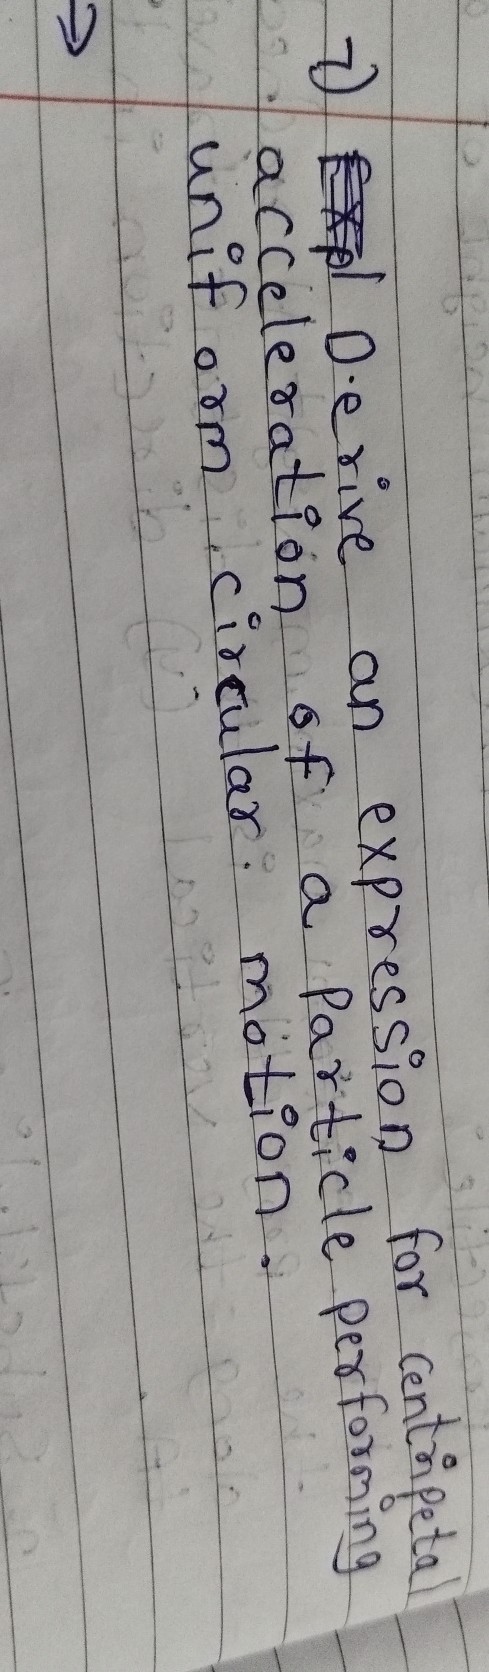 7) Derive an expression for centripetal
acceleration of a particle performing
uniform circular motion.
→